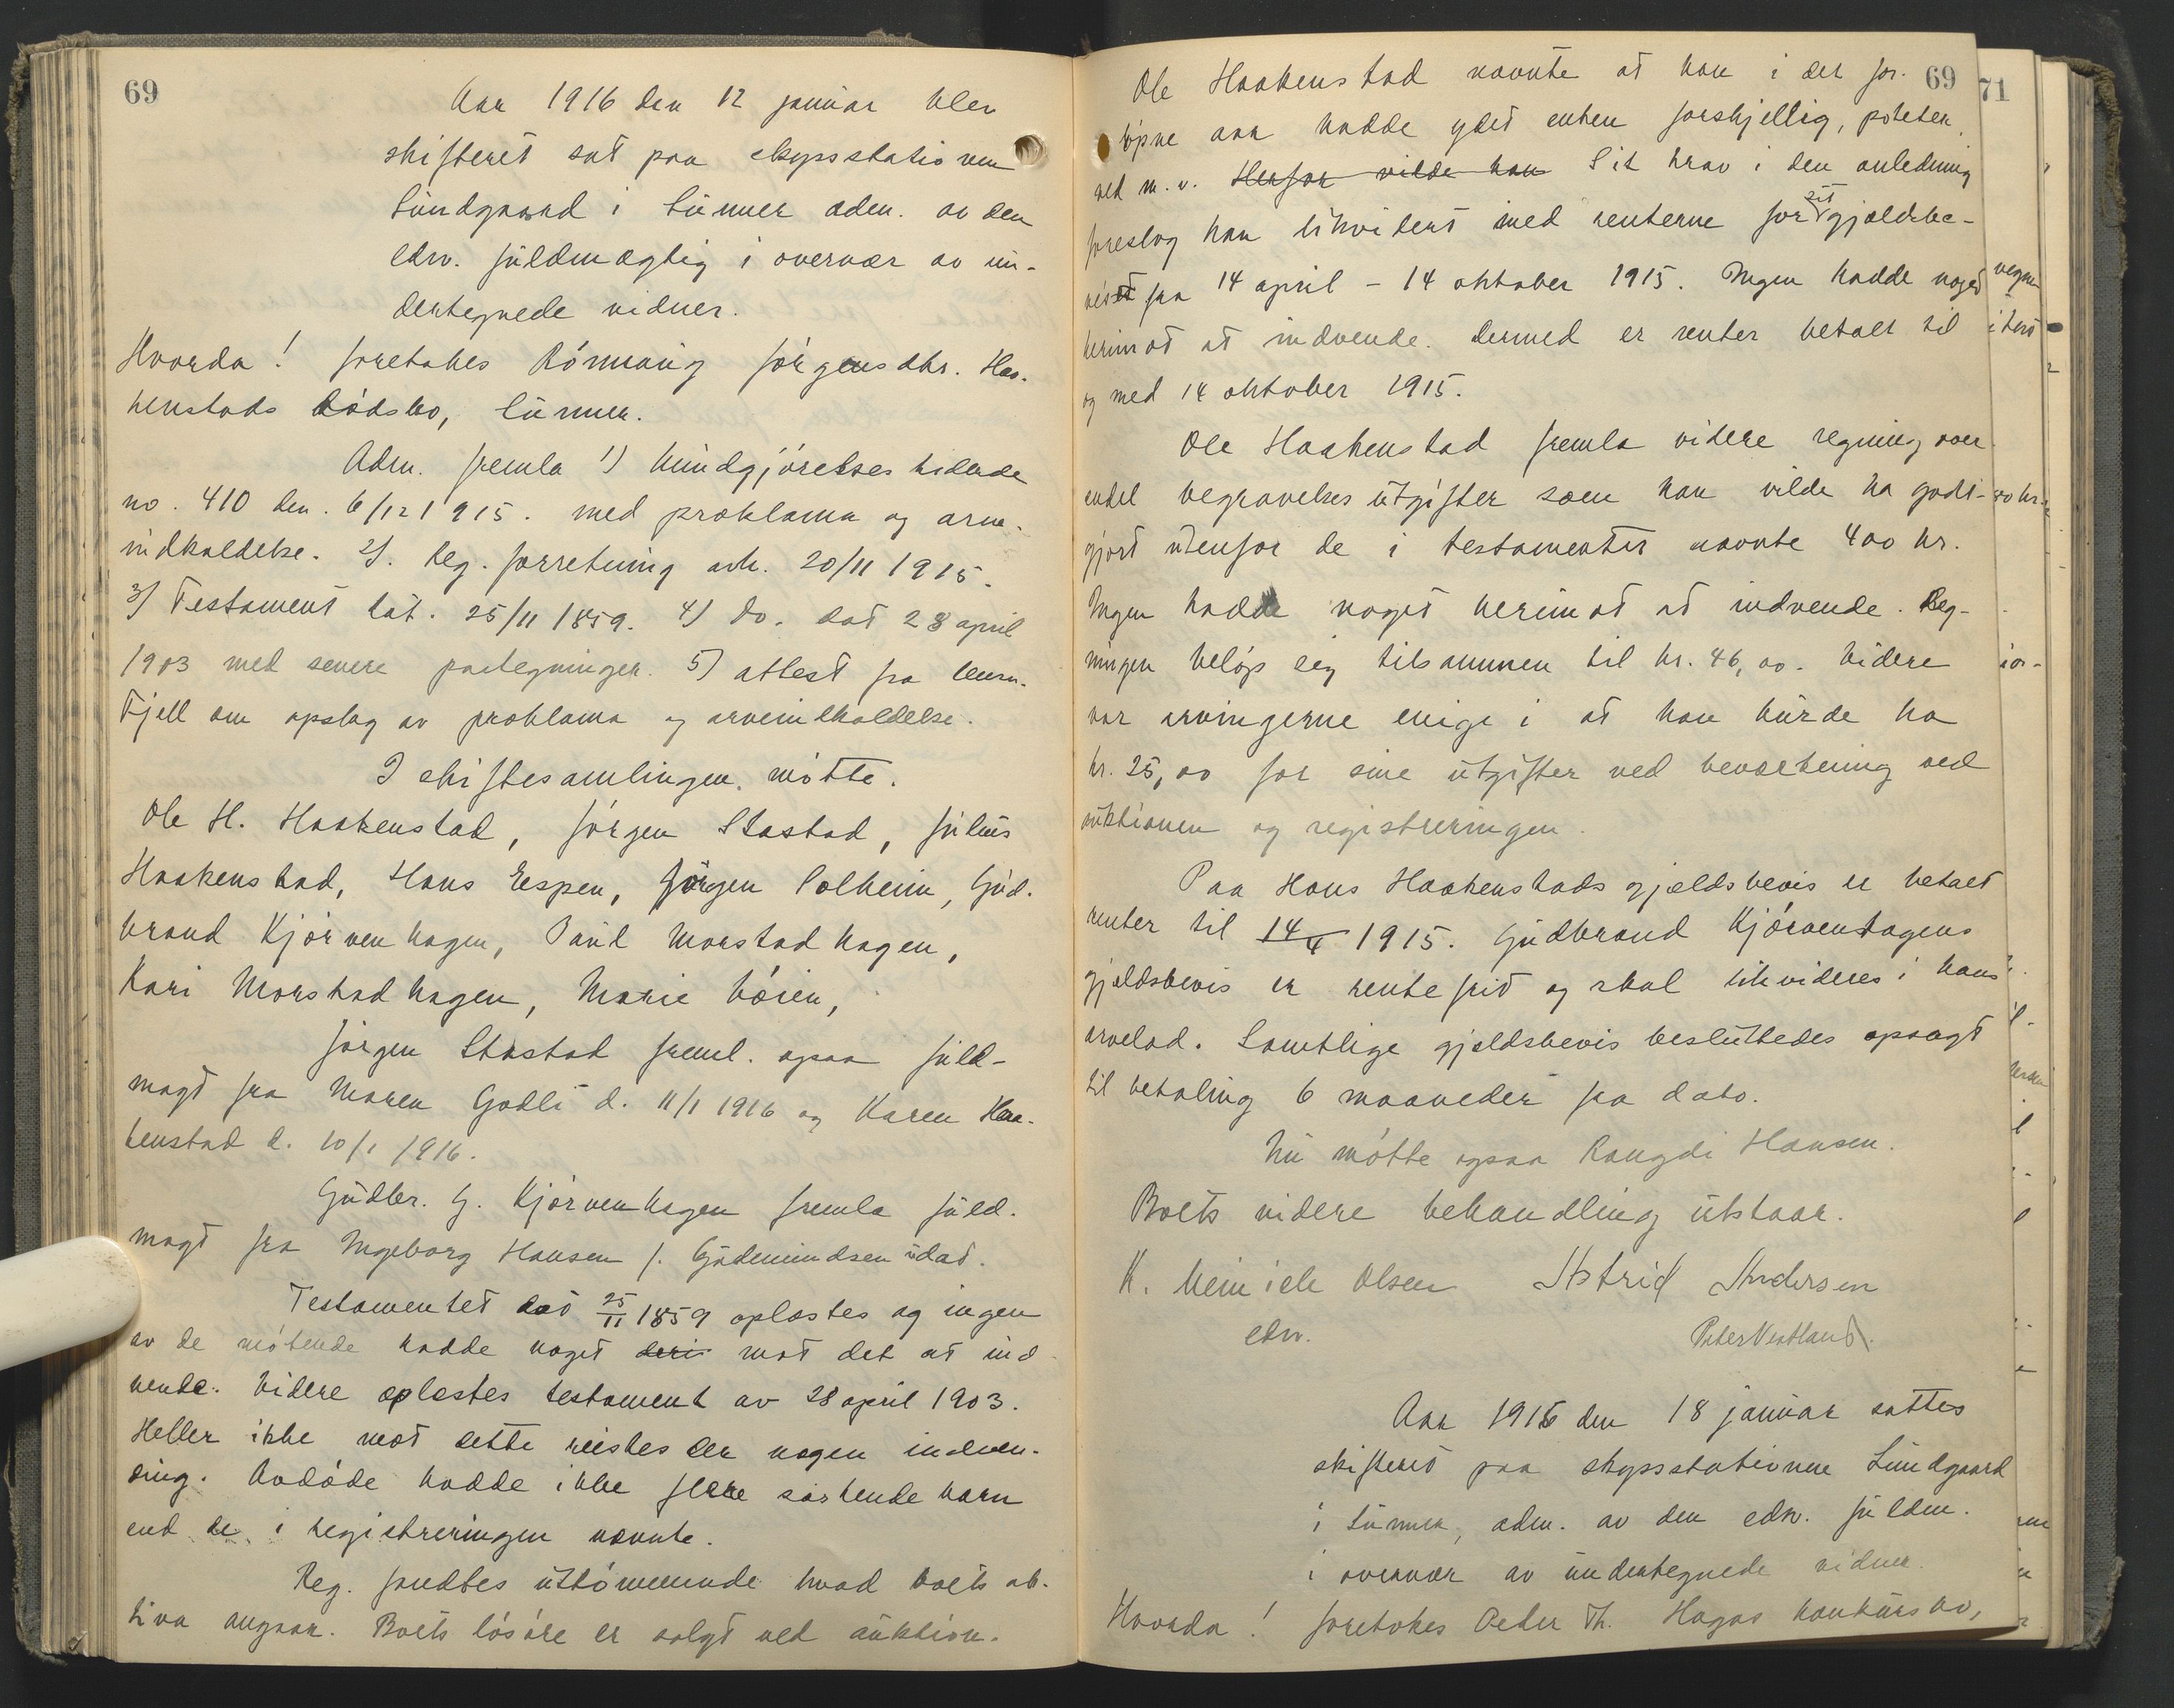 69
Aar 1916 den 12 januar blev
skifteret sat paa skysstationen
Lundgaard i Lunner adm. av den
edsv. fuldmægtig i overvær av un-
dertegnede vidner.
Hvorda! foretokes Rønnaug Jørgensdtr. Haa-
kenstads dødsbo, Lunner.
Adm. fremla 1) Kundgjørelsestidende
no. 410 den. 6/12 1915. med proklama og arve-
indkaldelse. 2). Reg. forretning avh. 20/11 1915.
3) Testament dat. 25/11 1859. 4) do. dat 28 april
1903 med senere paategninger. 5) attest fra lensm.
Fjell om opslag av proklama og arveindkaldelse.
I skiftesamlingen møtte.
Ole H. Haakenstad, Jørgen Stastad, Julius
Haakenstad, Hans Espen, Jørgen Solheim, Gud-
brand Kjørvenhagen, Paul Morstadhagen,
Kari Morstadhagen, Marie Løien,
Jørgen Stastad freml. ogsaa fuld-
magt fra Maren Godli d. 11/1 1916 og Karen Haa-
kenstad d. 10/1 1916.
Gudbr. G. Kjørvenhagen fremla fuld-
magt fra Ingeborg Hansen f. Gudmundsen udat.
Testamentet dat 25/11 1859 oplæstes og ingen
av de møtende hadde noget deri mot det at ind-
vende. Videre oplæstes testament av 28 april 1903.
Heller ikke mot dette reistes der nogen indven-
ding. Avdøde hadde ikke flere søskende barn
end de i registreringen nævnte.
Reg. fandtes uttømmende hvad boets ak-
tiva angaar. Boets løsøre er solgt ved auktion.
69
71
Ole Haakenstad nævnte at han i det for-
løpne aar hadde ydet enken forskjellig, poteter,
ved m. v. Herfor vilde han Sit krav i den anledning
foreslog han likvidert med renterne for sit gjældsbe-
vis fra 14 april - 14 oktober 1915. Ingen hadde noget
herimot at indvende. Dermed er renter betalt til
og med 14 oktober 1915.
Ole Haakenstad fremla videre regning over
endel begravelsesutgifter som han vilde ha godt-
gjort utenfor de i testamentet nævnte 400 kr.
Ingen hadde noget herimot at indvende. Reg-
ningen beløp sig tilsammen til kr. 46,00. Videre
var arvingerne enige i at han burde ha
kr. 25,00 for sine utgifter ved bevertning ved
auktionen og registreringen.
Paa Hans Haakenstads gjældsbevis er betalt
renter til 14/4 1915. Gudbrand Kjørvenhagens
gjældsbevis er rentefrit og skal likvideres i hans
arvelod. Samtlige gjældsbevis besluttedes opsagt
til betaling 6 maaneder fra dato.
Nu møtte ogsaa Rangdi Hansen.
Boets videre behandling utstaar.
K. Meinich Olsen Astrid Andersen
edsv. Peter Vestland.
Aar 1916 den 18 januar sattes
skifteret paa skysstationen Lundgaard
i Lunner, adm. av den edsv. fuldm.
i overvær av undertegnede vidner.
Hvorda! foretokes Peder Th. Hagas konkursbo,